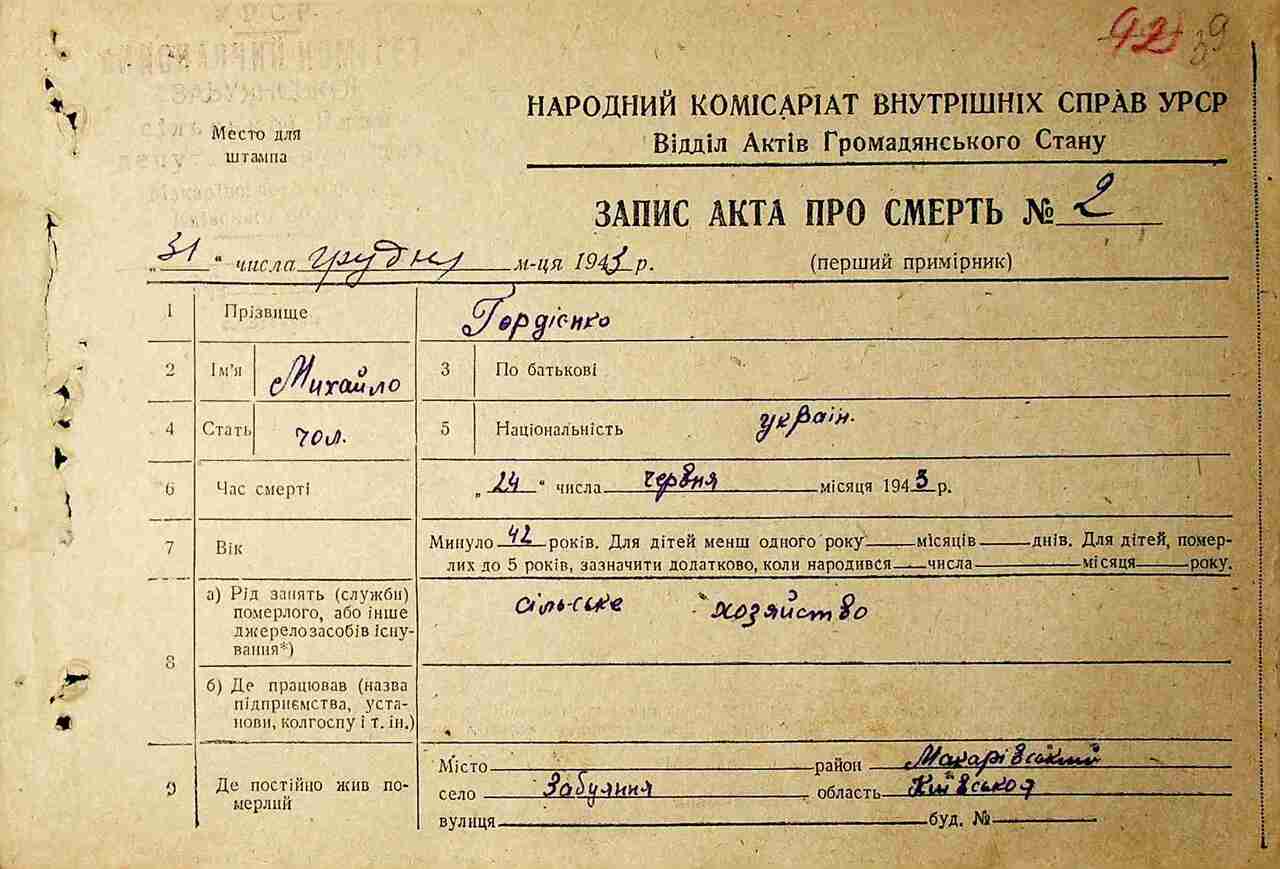 92 39
НАРОДНИЙ КОМІСАРІАТ ВНУТРІШНІХ СПРАВ УРСР
Відділ Актів Громадянського Стану
Место для
штампа
ЗАПИС АКТА ПРО СМЕРТЬ № 2
„31“ числа грудня м-ця 1943 р.
(перший примірник)
1 Прізвище Гордієнко
2 Ім'я Михайло 3 По батькові
4 Стать чол. 5 Національність україн.
6 Час смерті „24“ числа червня місяця 1943 р.
7 Вік Минуло 42 років. Для дітей менш одного року місяців днів. Для дітей, помер-
лих до 5 років, зазначити додатково, коли народився числа місяця року.
8 а) Рід занять (служби)
померлого, або інше
джерело засобів існу-
вання*)
сільське хозяйство
б) Де працював (назва
підприємства, уста-
нови, колгоспу і т. ін.)
9 Де постійно жив по-
мерлий
Місто район Макарівський
село Забуяння область Київськоя
вулиця буд. №